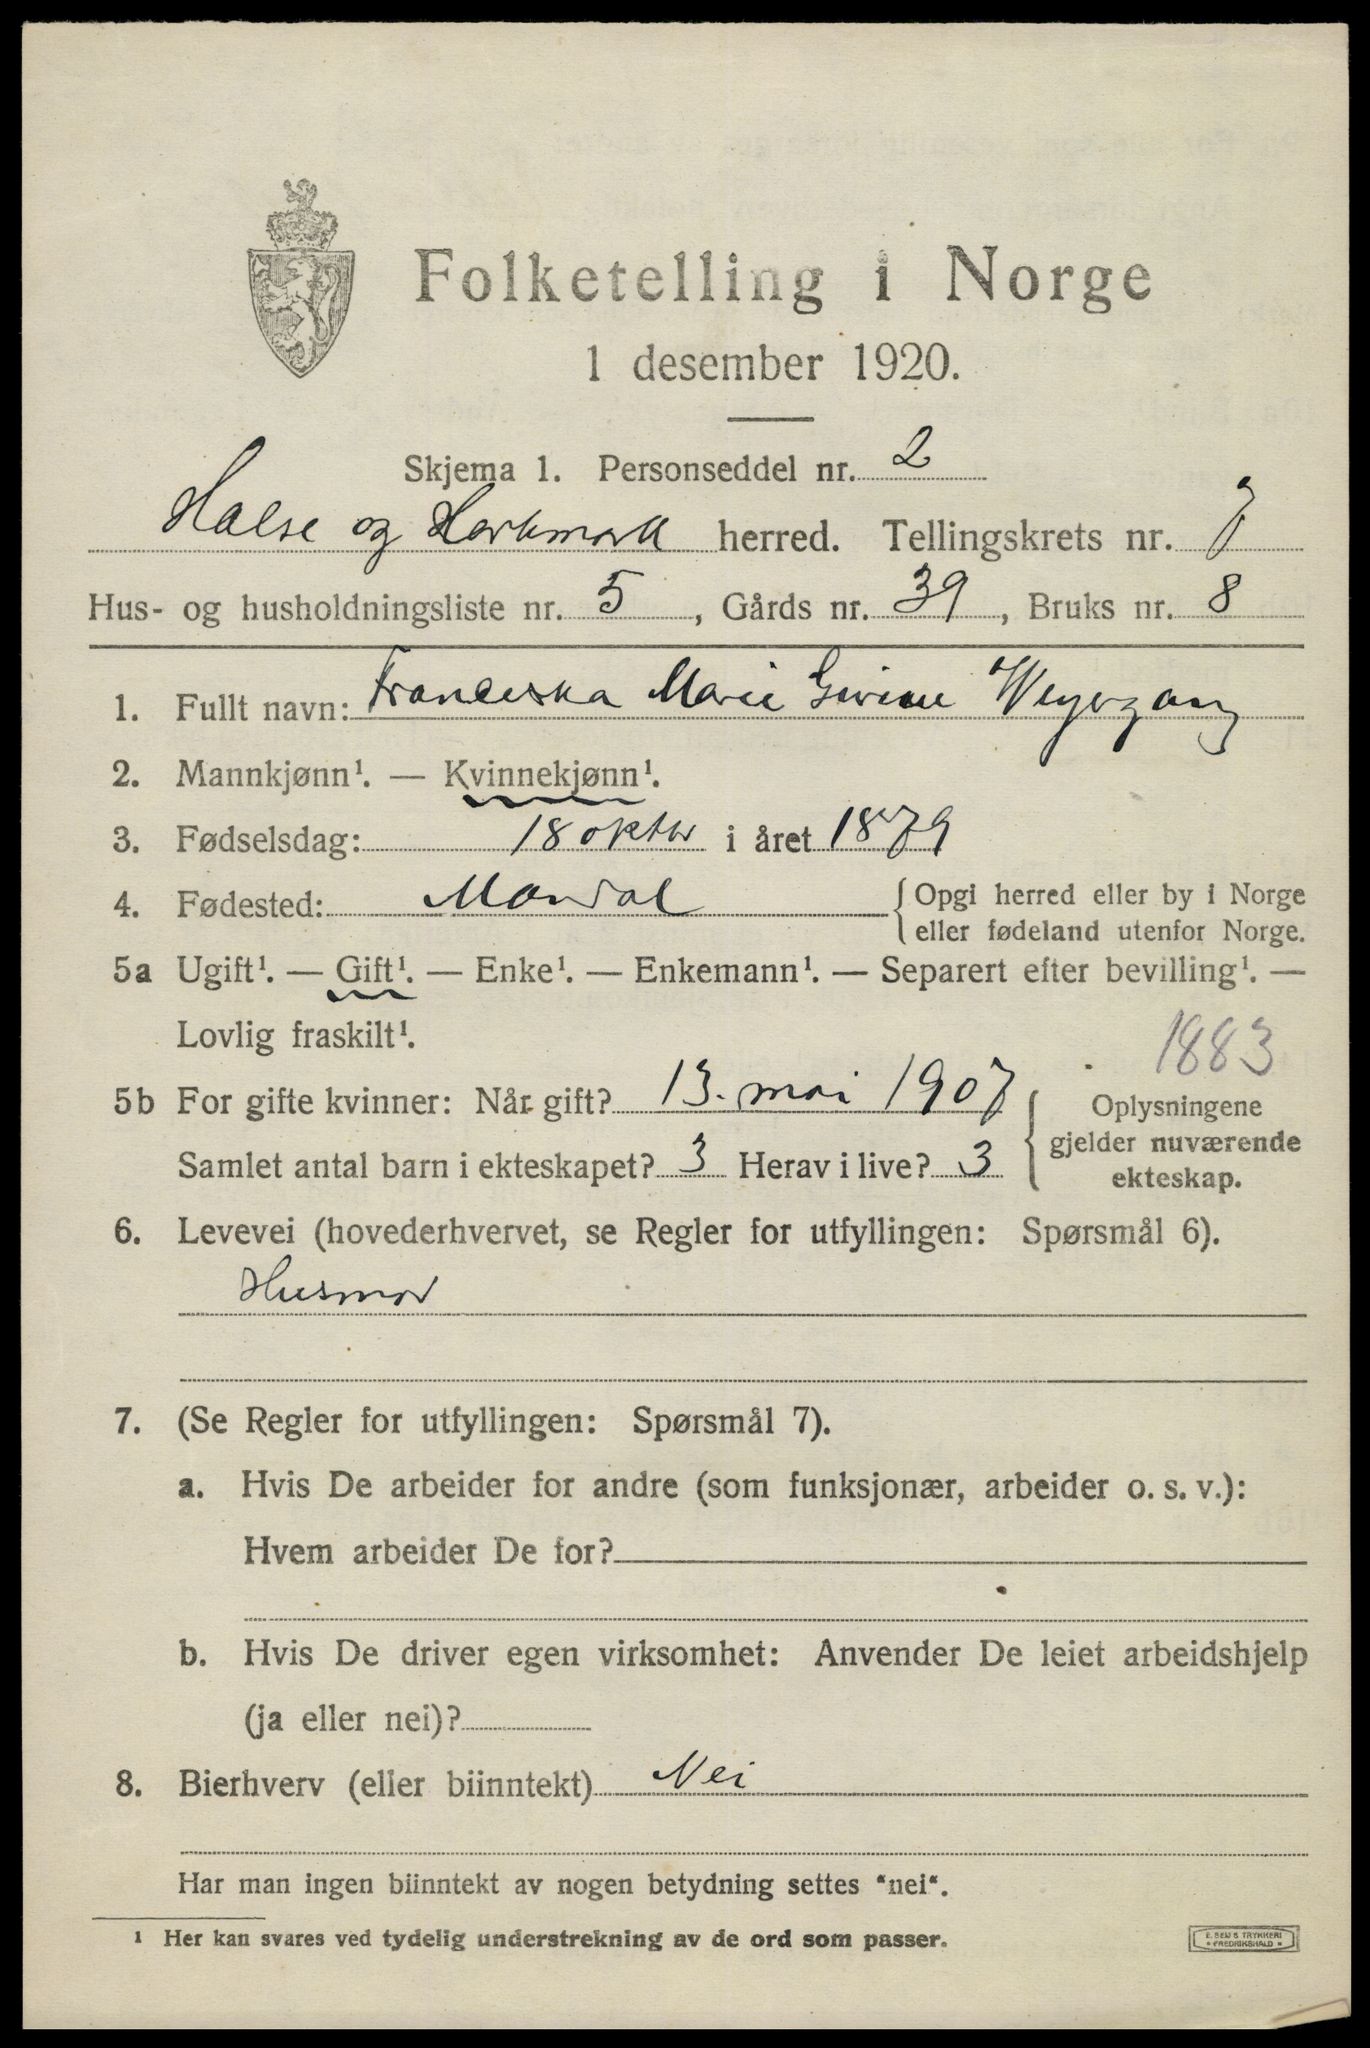 Folketelling i Norge
1 desember 1920.
Skjema 1. Personseddel nr. 2
Halse og Harkmark herred. Tellingskrets nr. 7
Hus- og husholdningsliste nr. 5, Gårds nr. 39, Bruks nr. 8
1. Fullt navn: Franceska Marie Weyergang
2. Mannkjønn¹. — Kvinnekjønn¹.
3. Fødselsdag: 18 oktbr i året 1879
4. Fødested: Mandal { Opgi herred eller by i Norge
eller fødeland utenfor Norge.
5a Ugift¹. — Gift¹. — Enke¹. — Enkemann¹. — Separert efter bevilling¹. —
Lovlig fraskilt¹.
1883
5b For gifte kvinner: Når gift? 13. mai 1907 { Oplysningene
gjelder nuværende
Samlet antal barn i ekteskapet? 3 Herav i live? 3
ekteskap.
6. Levevei (hovederhvervet, se Regler for utfyllingen: Spørsmål 6).
Husmor
7. (Se Regler for utfyllingen: Spørsmål 7).
a. Hvis De arbeider for andre (som funksjonær, arbeider o. s. v.):
Hvem arbeider De for?
b. Hvis De driver egen virksomhet: Anvender De leiet arbeidshjelp
(ja eller nei)?
8. Bierhverv (eller biinntekt) Nei
Har man ingen biinntekt av nogen betydning settes "nei".
¹ Her kan svares ved tydelig understrekning av de ord som passer.
E. SEM'S TRYKKERI
FREDRIKSHALD